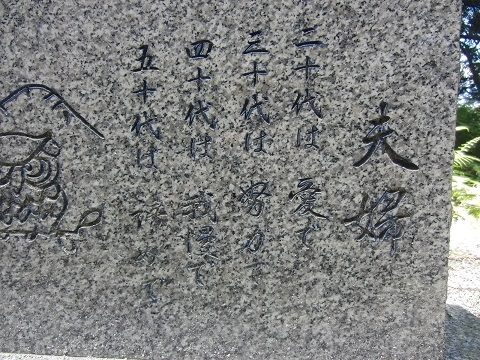 夫婦
二十代は 愛で
三十代は 努力で
四十代は 我慢で
五十代は 諦めで